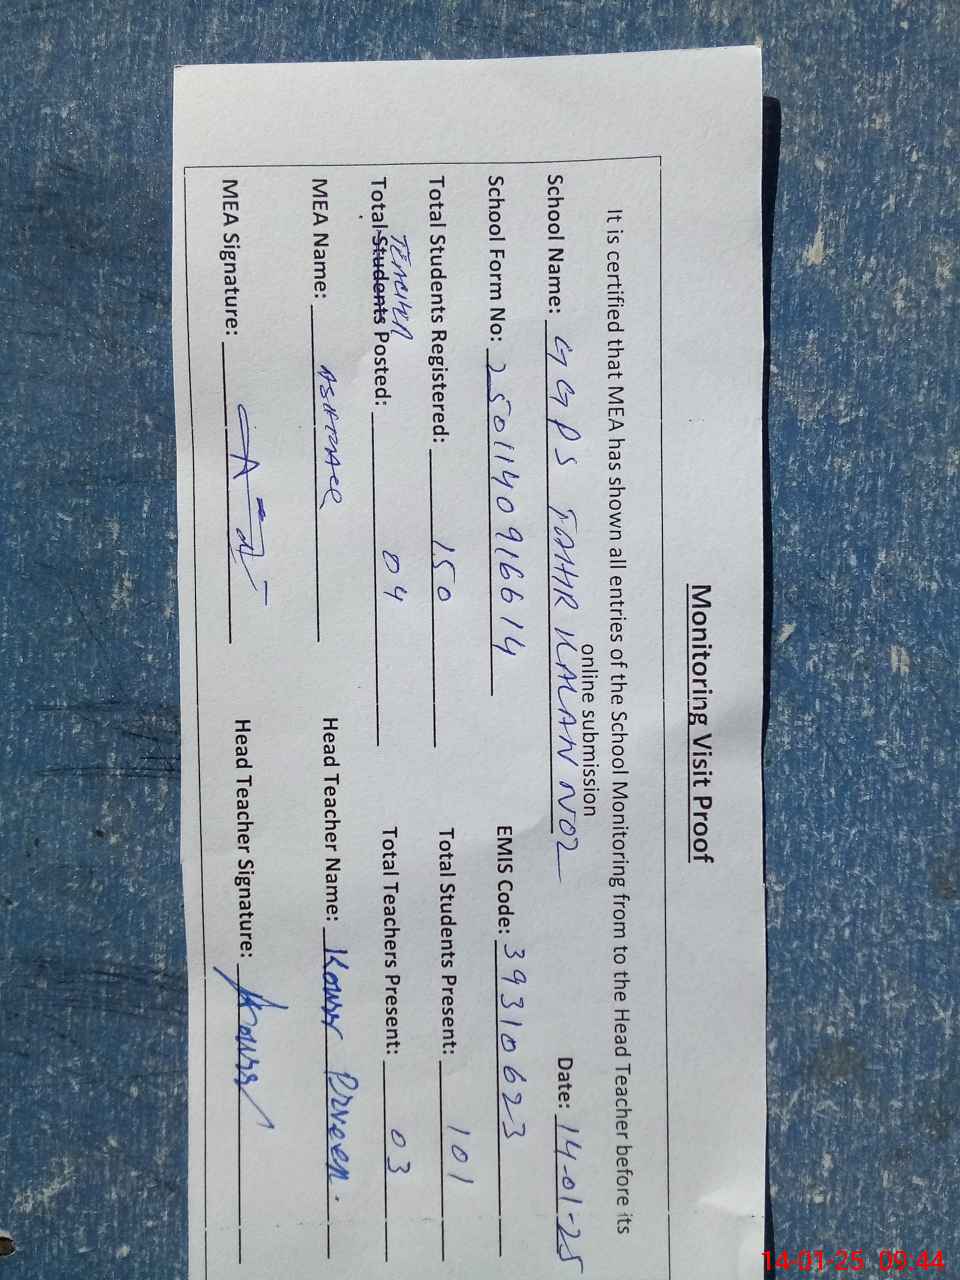 Monitoring Visit Proof
It is certified that MEA has shown all entries of the School Monitoring from to the Head Teacher before its
online submission
School Name: GGPS TAHR KALAN NO2 Date: 14-01-25
School Form No: 2501140916614 EMIS Code: 39310623
Total Students Registered: 150 Total Students Present: 101
Teacher
Total Students Posted: 04 Total Teachers Present: 03
MEA Name: Head Teacher Name: Kousar Prveen.
MEA Signature: Head Teacher Signature:
14-01-25 09:44